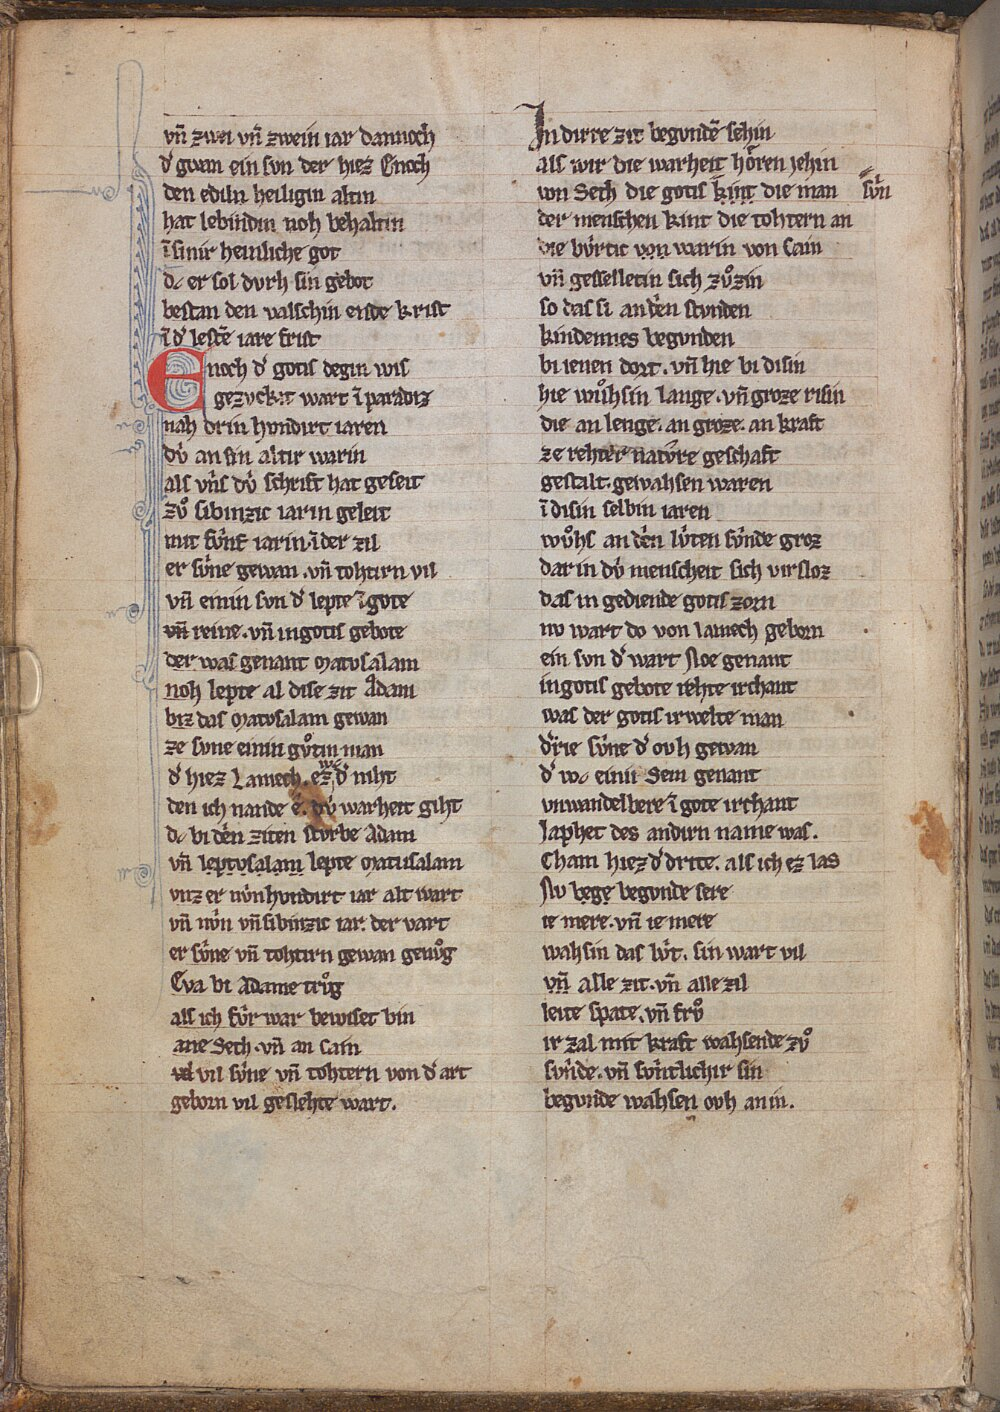 vn̄ zwei vn̄ zwein iar dannoch
d͛ gwan ein svn der hiez Enoch
den ediln heiligin altin
hat lebindin noh behaltin
ī sinir heinliche got
dc er sol dvrh sin gebot
bestan den valschin ende krist
ī d͛ lestē iare frist
Enoch d͛ gotis degin wis
gezvckit wart ī paradiz
nah drin hvndirt iaren
dv̍ an sin altir warin
als vn͛s dv̍ schrift hat geseit
zv̊ sibinzic iarin geleit
mit fv̍nf iarin. ī der zil
er sv̍ne gewan. vn̄ tohtirn vil
vn̄ einin svn d͛ lepte ī gote
vn̄ reine. vn̄ in gotis gebote
der was genant Matusalam
noh lepte al dise zit Adam
biz das Matvsalam gewan
ze svne einin gv̊tin man
d͛ hiez Lamech. ez wc d͛ niht
den ich nande e͛. dv̍ warheit giht
dc bi den ziten stvrbe Adam
vn̄ leptvsalam lepte Matusalam
vnz er nv̍nhvndirt iar alt wart
vn̄ nv̍n vn̄ sibinzic iar. der vart
er sv̍ne vn̄ tohtirn gewan genv̊g
Eva bi Adame trv̊g
als ich fv̍r war bewiset bin
ane Seth. vn̄ an Cain
vil sv̍ne vn̄ tohtern von d͛ art
geborn vil geslehte wart.
In dirre zit begvndē sehin
als wir die warheit hȯren jehin
von Seth die gotis kint die man sv̍n
der menschen kint die tohtern an
die bv̍rtic von warin von Cain
vn̄ geselletin sich zv̊zin
so das si an d͛en stvnden
kindennes begvnden
bi ienen dort. vn̄ hie bi disin
hie wv̊hsin lange. vn̄ groze risin
die an lenge. an groze. an kraft
ze rehter natv̍re geschaft
gestalt. gewahsen waren
ī disin selbin iaren
wv̊hs an d͛en lv̍ten sv̍nde groz
dar in dv̍ menscheit sich virsloz
das in gediende gotis zorn
nv wart do von Lamech geborn
ein svn d͛ wart Noe genant
in gotis gebote rehte irchant
was der gotis irwelte man
d͛rie sv̍ne d͛ ovh gewan
d͛ wc einir Sem genant
vnwandelbere ī gote irchant
Japhet des andirn name was.
Cham hiez d͛ dritte. als ich ez las
Nv bege begonde sere
ie mere. vn̄ ie mere
wahsin das lv̍t. sin wart vil
vn̄ alle zit. vn̄ alle zil
leite spate. vn̄ frv̊
ir zal mit kraft wahsende zv̊
svnde. vn̄ svntlichir sin
begvnde wahsen ovh an in.